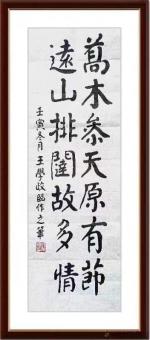 喬木参天原有節
遠山排闥故多情
壬寅冬月王學政臨作之筆